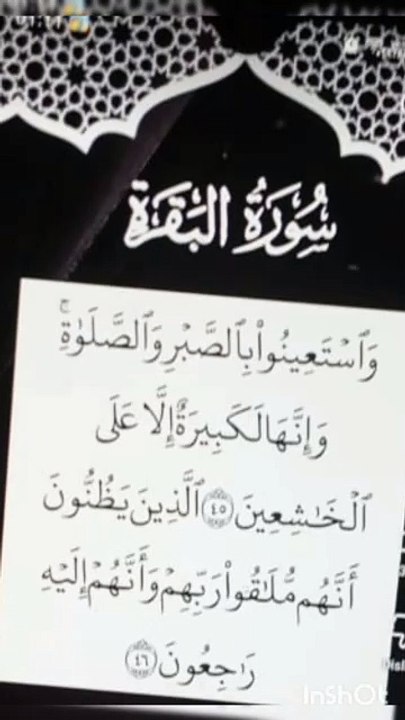 سُورَةُ البَقَرَةِ
وَٱسْتَعِينُوا۟ بِٱلصَّبْرِ وَٱلصَّلَوٰةِ ۚ
وَإِنَّهَا لَكَبِيرَةٌ إِلَّا عَلَى
ٱلْخَـٰشِعِينَ ٤٥ ٱلَّذِينَ يَظُنُّونَ
أَنَّهُم مُّلَـٰقُوا۟ رَبِّهِمْ وَأَنَّهُمْ إِلَيْهِ
رَٰجِعُونَ ٤٦
InShOt